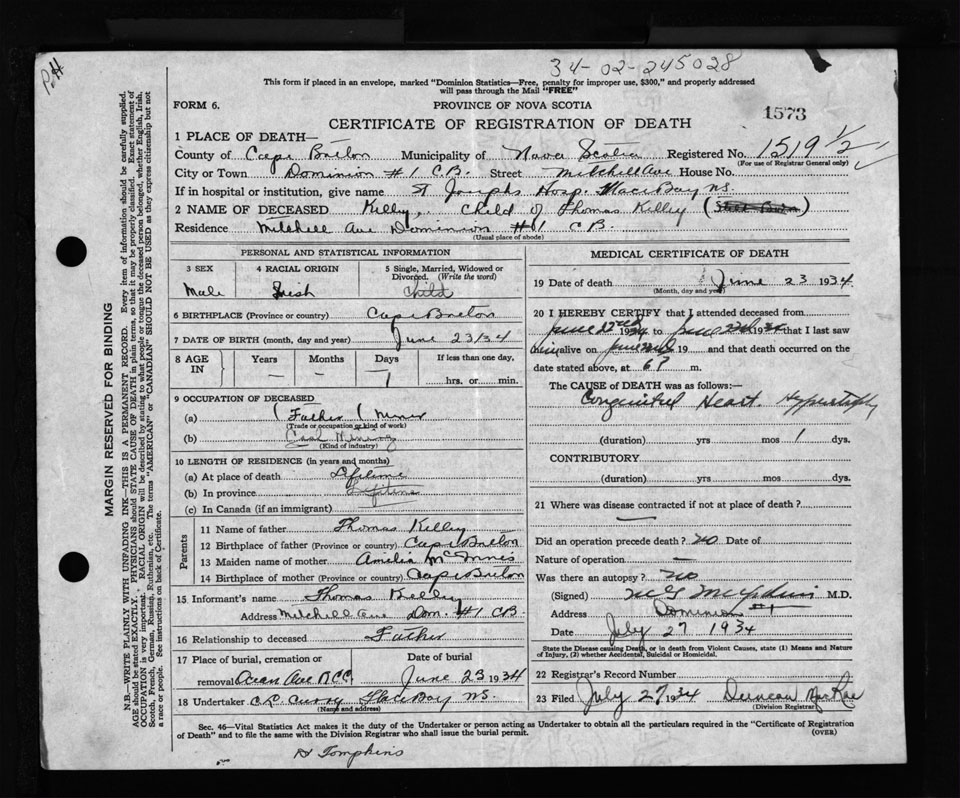 P.H
34-02-245028
This form if placed in an envelope, marked "Dominion Statistics—Free, penalty for improper use, $300," and properly addressed
will pass through the Mail "FREE"
FORM 6.
PROVINCE OF NOVA SCOTIA
1573
CERTIFICATE OF REGISTRATION OF DEATH
1 PLACE OF DEATH—
County of Cape Breton Municipality of Nova Scotia Registered No. 1519 1/2
(For use of Registrar General only)
City or Town Dominion #1 C.B. Street Mitchell Ave House No.
If in hospital or institution, give name St Josephs Hosp. Glace Bay N.S.
2 NAME OF DECEASED Killey, Child of Thomas Killey
Residence Mitchell Ave Dominion #1 C.B.
(Usual place of abode)
PERSONAL AND STATISTICAL INFORMATION
3 SEX
4 RACIAL ORIGIN
5 Single, Married, Widowed or Divorced. (Write the word)
Male
Irish
Child
6 BIRTHPLACE (Province or country) Cape Breton
7 DATE OF BIRTH (month, day and year) June 23/34
8 AGE IN
Years
Months
Days
If less than one day,
— — 1 hrs. or min.
9 OCCUPATION OF DECEASED
(a) (Father ( Miner
(Trade or occupation or kind of work)
(b) Coal Mining
(Kind of industry)
10 LENGTH OF RESIDENCE (in years and months)
(a) At place of death Lifetime
(b) In province Lifetime
(c) In Canada (if an immigrant)
Parents
11 Name of father Thomas Killey
12 Birthplace of father (Province or country) Cape Breton
13 Maiden name of mother Amelia McInnis
14 Birthplace of mother (Province or country) Cape Breton
15 Informant's name Thomas Killey
Address Mitchell Ave Dom. #1 C.B.
16 Relationship to deceased Father
17 Place of burial, cremation or removal Ocean Ave R.C.C.
Date of burial June 23 1934
18 Undertaker C.L. Curry Glace Bay N.S.
(Name and address)
MEDICAL CERTIFICATE OF DEATH
19 Date of death June 23 1934
(Month, day and year)
20 I HEREBY CERTIFY that I attended deceased from
June 22nd 1934 to June 23d 1934 that I last saw
him alive on June 23d 19 and that death occurred on the
date stated above, at 6 P m.
The CAUSE of DEATH was as follows:—
Congenital Heart. Hypertrophy
(duration) yrs mos 1 dys.
CONTRIBUTORY
(duration) yrs mos dys.
21 Where was disease contracted if not at place of death?
—
Did an operation precede death? no Date of
Nature of operation —
Was there an autopsy? no
(Signed) M.D.
Address Dominion #1
Date July 27 1934
State the Disease causing Death, or in death from Violent Causes, state (1) Means and Nature
of Injury, (2) whether Accidental, Suicidal or Homicidal.
22 Registrar's Record Number
23 Filed July 27, 1934 Duncan MacRae
(Division Registrar)
Sec. 46—Vital Statistics Act makes it the duty of the Undertaker or person acting as Undertaker to obtain all the particulars required in the "Certificate of Registration
of Death" and to file the same with the Division Registrar who shall issue the burial permit.
(OVER)
H Tompkins
MARGIN RESERVED FOR BINDING
N.B.—WRITE PLAINLY WITH UNFADING INK—THIS IS A PERMANENT RECORD. Every item of information should be carefully supplied.
AGE should be stated EXACTLY. PHYSICIANS should STATE CAUSE OF DEATH in plain terms, so that it may be properly classified. Exact statement of
OCCUPATION is very important. RACIAL ORIGIN will be described by stating to what people or tongue the deceased person belonged, whether English, Irish,
Scotch, French, German, Russian, Ruthenian, etc. The terms "AMERICAN" or "CANADIAN" SHOULD NOT BE USED as they express citizenship but not
a race or people. See instructions on back of Certificate.